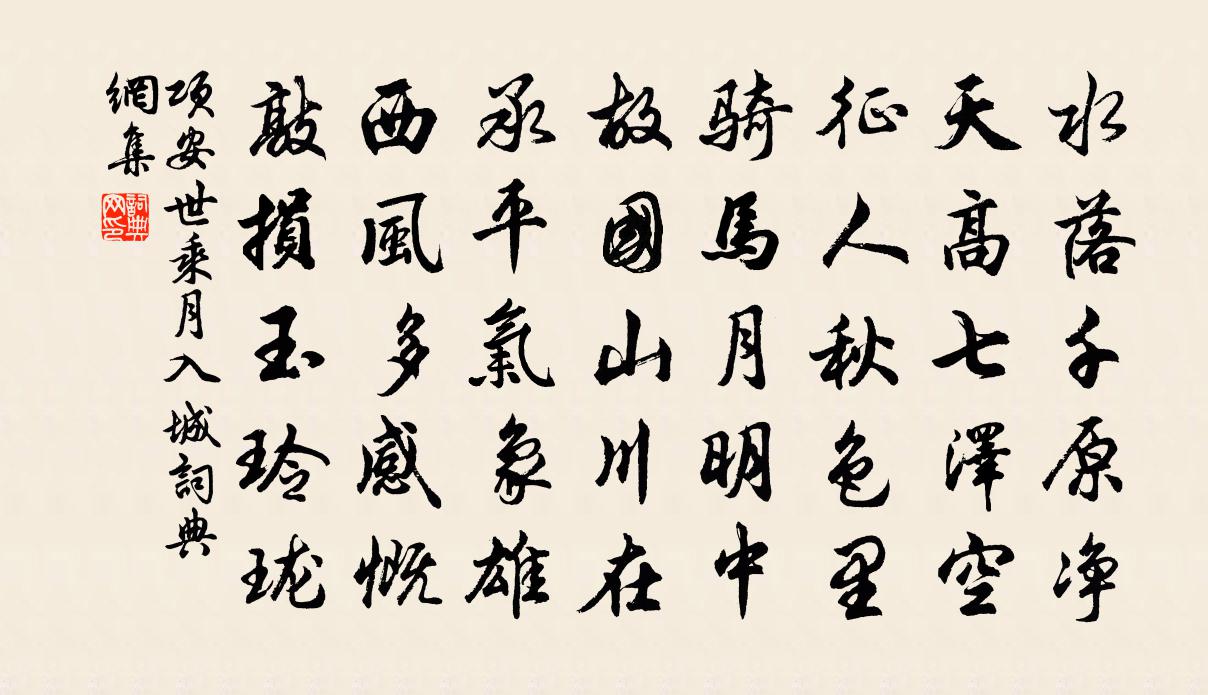 水落千原净
天高七澤空
征人秋色里
骑馬月明中
故國山川在
承平氣象雄
西風多感慨
敲損玉玲珑
项安世乘月入城詞典
網集
詞典
网印